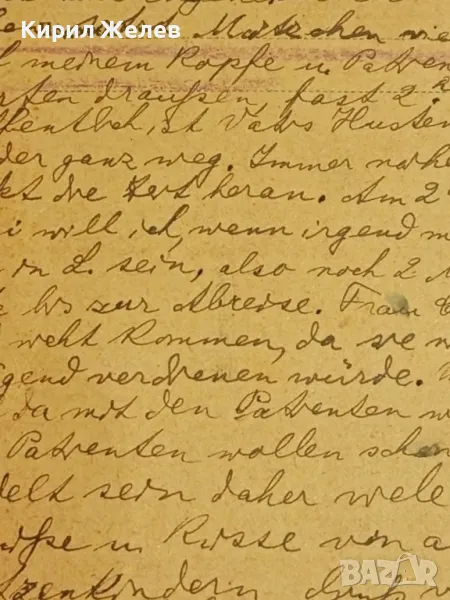 Кирил Желев
meinem Kopfe u. Patien
ten draußen, fast 2.
ffentlich, ist Vaters Husten
der ganz weg. Immer nähe
kt die Zeit heran. Am 2
i will ich, wenn irgend m
in L. sein, also noch 2
bis zur Abreise. Frau
weht kommen, da sie
gend verdienen würde.
da mit den Patienten w
Patienten wollen scho
delt sein daher wele
üße u. Küsse von a
tzenkindern
BAZAR.bg